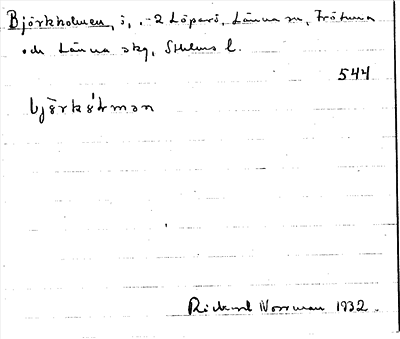 Björkholmen, i, .-2 Löparö, Länna sn, Frötuna
och Länna skg, Sthlms l.
544
bjö̀rkǻ̊lmən
Rickard Norrman 1932.